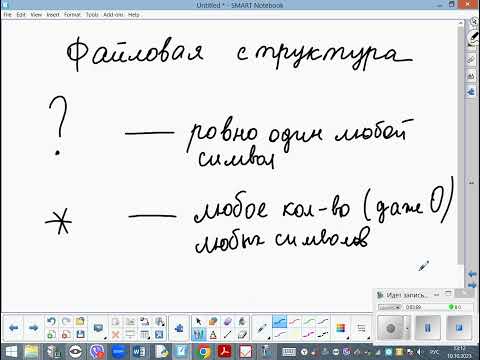 Untitled * - SMART Notebook
File Edit View Insert Format Tools Add-ons Help
Файловая структура
? — ровно один любой
символ
* — любое кол-во (даже 0)
любых символов
Идет запись...
РУС
10.10.2023